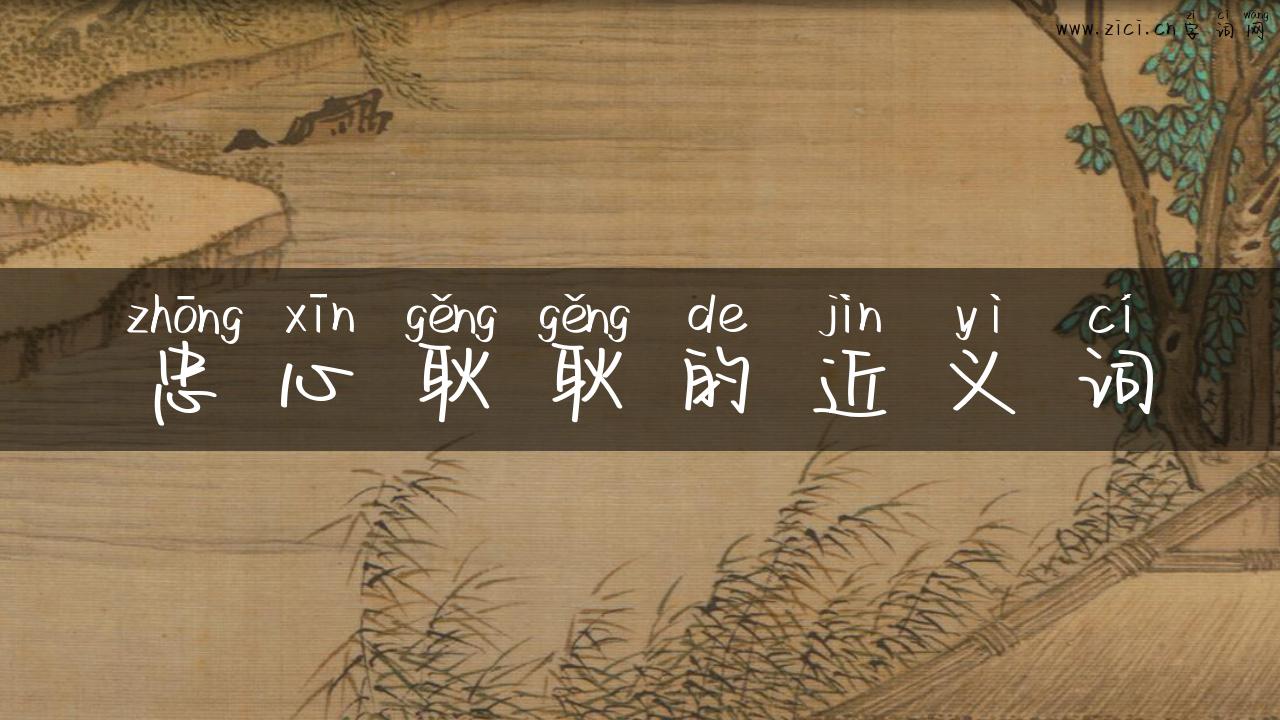 zi ci wang
www.zici.cn字词网
zhōng xīn gěng gěng de jìn yì cí
忠心耿耿的近义词